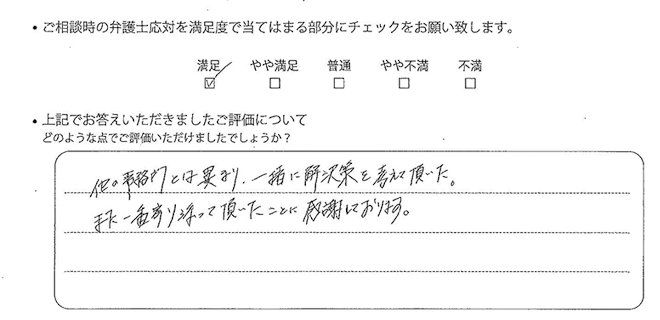 ・ご相談時の弁護士応対を満足度で当てはまる部分にチェックをお願い致します。
満足 やや満足 普通 やや不満 不満
☑ ☐ ☐ ☐ ☐
・上記でお答えいただきましたご評価について
どのような点でご評価いただけましたでしょうか？
他の事務所とは異なり、一緒に解決策を考えて頂いた。
また一番寄り添って頂いたことに感謝しております。